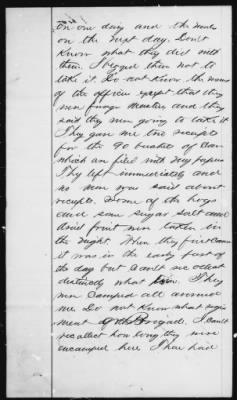 on one day and the mules
on the next day. Don't
Know what they did with
them. I begged them not to
take it. Do not Know the names
of the officers except that they
were forage Masters and they
said they were going to take it
They gave me two receipts
for the 90 bushels of Corn
which are filed with my papers
They left immediately and
no more was said about
receipts. Some of the hogs
and some sugar salt and
dried fruit were taken in
the night. When they first came
it was in the early part of
the day but can't recollect
distinctly what time. They
were Camped all around
me. Do not Know what regi
ment or Brigade. I can't
recollect how long they were
encamped here I have had